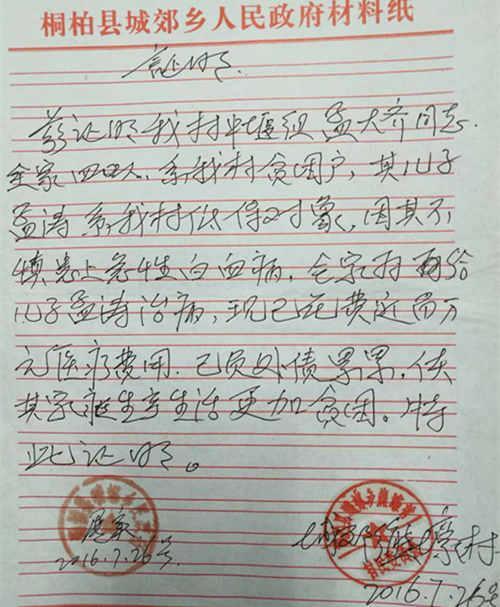 桐柏县城郊乡人民政府材料纸
证明
兹证明我村堰组孟大齐同志
全家四口人,系我村贫困户,其儿子
孟涛系我村低保对象,因其不
慎患上急性白血病,全家为给
儿子孟涛治病,现已花费近百万
元医疗费用,已负外债累累,使
其家庭生产生活更加贫困。特
此证明。
属实
2016.7.26号
城郊乡村
2016.7.26号